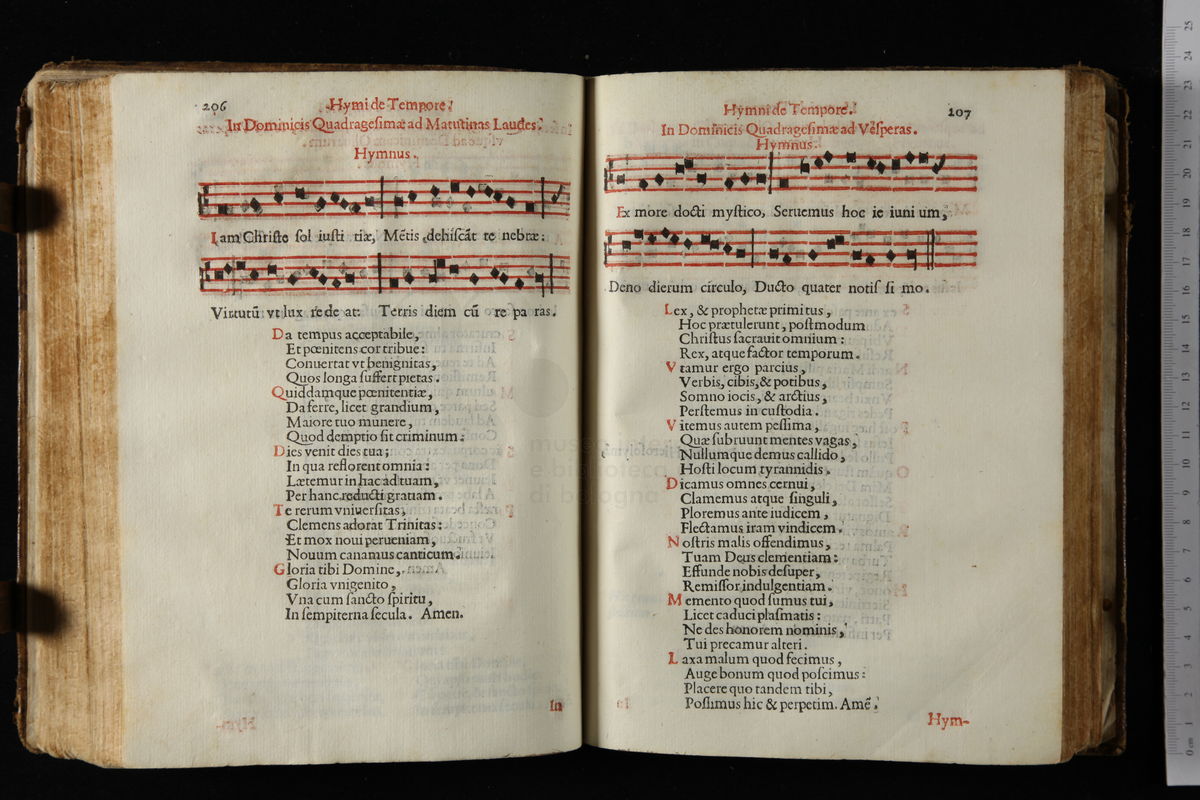 206
Hymi de Tempore.
In Dominicis Quadragesimæ ad Matutinas Laudes.
Hymnus.
Iam Christe sol iusti tiæ, Mẽtis dehiscãt te nebræ:
Virtutũ vt lux re de at: Terris diem cũ re pa ras.
Da tempus acceptabile,
Et pœnitens cor tribue:
Conuertat vt benignitas,
Quos longa suffert pietas.
Quiddamque pœnitentiæ,
Da ferre, licet grandium,
Maiore tuo munere,
Quod demptio sit criminum:
Dies venit dies tua;
In qua reflorent omnia:
Lætemur in hac ad tuam,
Per hanc reducti gratiam.
Te rerum vniuersitas,
Clemens adorat Trinitas:
Et mox noui per veniam,
Nouum canamus canticum.
Gloria tibi Domine,
Gloria vnigenito,
Vna cum sancto spiritu,
In sempiterna secula. Amen.
In
Hymni de Tempore.
207
In Dominicis Quadragesimæ ad Vesperas.
Hymnus.
Ex more docti mystico, Seruemus hoc ie iuni um,
Deno dierum circulo, Ducto quater notis si mo.
Lex, & prophetæ primitus,
Hoc prætulerunt, postmodum
Christus sacrauit omnium:
Rex, atque factor temporum.
Vtamur ergo parcius,
Verbis, cibis, & potibus,
Somno iocis, & arctius,
Perstemus in custodia.
Vitemus autem pessima,
Quæ subruunt mentes vagas,
Nullumque demus callido,
Hosti locum tyrannidis.
Dicamus omnes cernui,
Clamemus atque singuli,
Ploremus ante iudicem,
Flectamus iram vindicem.
Nostris malis offendimus,
Tuam Deus clementiam:
Effunde nobis desuper,
Remissor indulgentiam.
Memento quod sumus tui,
Licet caduci plasmatis:
Ne des honorem nominis,
Tui precamur alteri.
Laxa malum quod fecimus,
Auge bonum quod poscimus:
Placere quo tandem tibi,
Possimus hic & perpetim. Amẽ.
Hym-